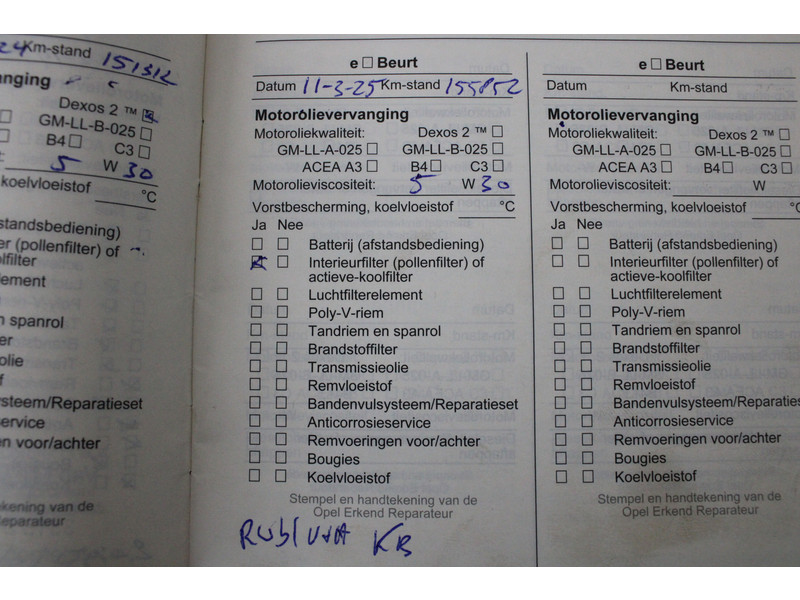 24 Km-stand 151312
vanging
Dexos 2 ™ ☒
GM-LL-B-025 ☐
B4 ☐ C3 ☐
5 W 30
koelvloeistof °C
fstandsbediening)
er (pollenfilter) of
lfilter
lement
n spanrol
er
olie
f
steem/Reparatieset
service
en voor/achter
ekening van de
Reparateur
e ☐ Beurt
Datum 11-3-25 Km-stand 155852
Motorolievervanging
Motoroliekwaliteit: Dexos 2 ™ ☐
GM-LL-A-025 ☐ GM-LL-B-025 ☐
ACEA A3 ☐ B4 ☐ C3 ☐
Motorolieviscositeit: 5 W 30
Vorstbescherming, koelvloeistof °C
Ja Nee
☐ ☐ Batterij (afstandsbediening)
☒ ☐ Interieurfilter (pollenfilter) of
actieve-koolfilter
☐ ☐ Luchtfilterelement
☐ ☐ Poly-V-riem
☐ ☐ Tandriem en spanrol
☐ ☐ Brandstoffilter
☐ ☐ Transmissieolie
☐ ☐ Remvloeistof
☐ ☐ Bandenvulsysteem/Reparatieset
☐ ☐ Anticorrosieservice
☐ ☐ Remvoeringen voor/achter
☐ ☐ Bougies
☐ ☐ Koelvloeistof
Stempel en handtekening van de
Opel Erkend Reparateur
KB
e ☐ Beurt
Datum Km-stand
Motorolievervanging
Motoroliekwaliteit: Dexos 2 ™ ☐
GM-LL-A-025 ☐ GM-LL-B-025 ☐
ACEA A3 ☐ B4 ☐ C3 ☐
Motorolieviscositeit: W
Vorstbescherming, koelvloeistof °C
Ja Nee
☐ ☐ Batterij (afstandsbediening)
☐ ☐ Interieurfilter (pollenfilter) of
actieve-koolfilter
☐ ☐ Luchtfilterelement
☐ ☐ Poly-V-riem
☐ ☐ Tandriem en spanrol
☐ ☐ Brandstoffilter
☐ ☐ Transmissieolie
☐ ☐ Remvloeistof
☐ ☐ Bandenvulsysteem/Reparaties
☐ ☐ Anticorrosieservice
☐ ☐ Remvoeringen voor/achter
☐ ☐ Bougies
☐ ☐ Koelvloeistof
Stempel en handtekening van de
Opel Erkend Reparateur